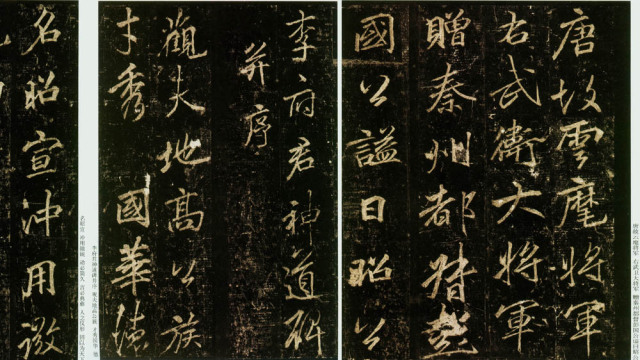 唐故雲麾將軍
右武衛大將軍
贈秦州都督彭
國公謚曰昭公
李府君神道碑
并序
觀夫地高公族
才秀國華德
名昭宣沖用微